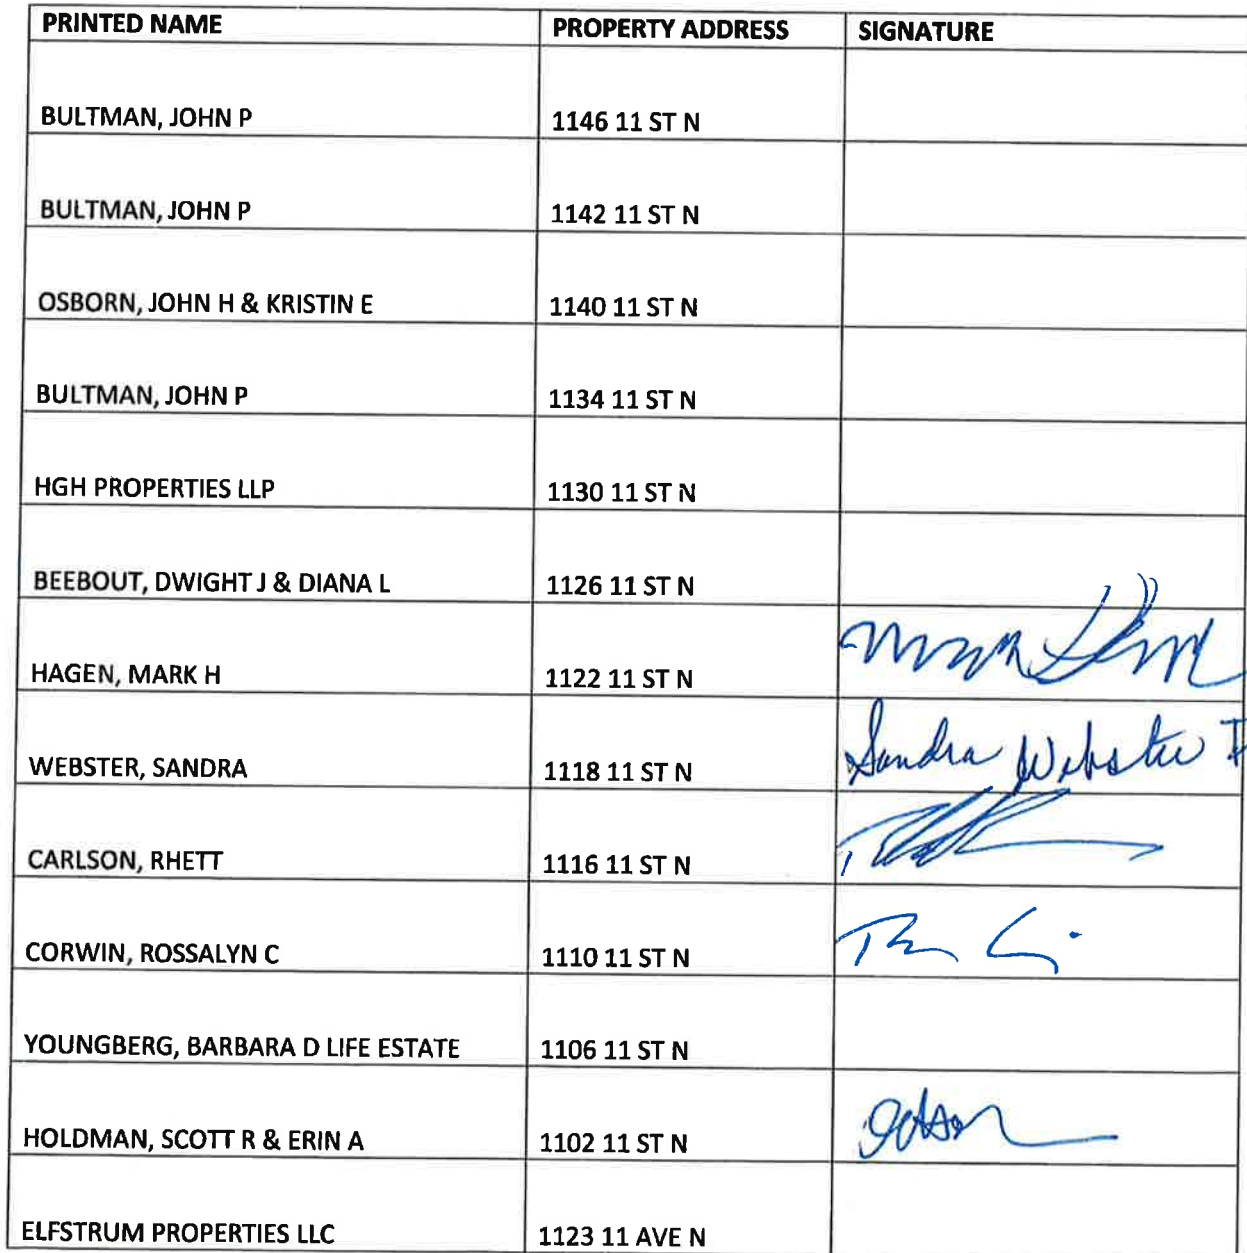 PRINTED NAME PROPERTY ADDRESS SIGNATURE
BULTMAN, JOHN P 1146 11 ST N
BULTMAN, JOHN P 1142 11 ST N
OSBORN, JOHN H & KRISTIN E 1140 11 ST N
BULTMAN, JOHN P 1134 11 ST N
HGH PROPERTIES LLP 1130 11 ST N
BEEBOUT, DWIGHT J & DIANA L 1126 11 ST N
HAGEN, MARK H 1122 11 ST N
WEBSTER, SANDRA 1118 11 ST N Sandra Webster
CARLSON, RHETT 1116 11 ST N
CORWIN, ROSSALYN C 1110 11 ST N
YOUNGBERG, BARBARA D LIFE ESTATE 1106 11 ST N
HOLDMAN, SCOTT R & ERIN A 1102 11 ST N
ELFSTRUM PROPERTIES LLC 1123 11 AVE N